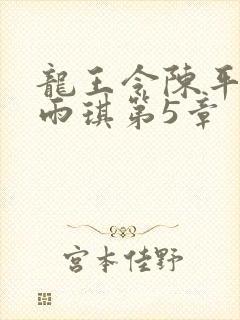 龍王令陳平
雨琪第5章
宮本佳野